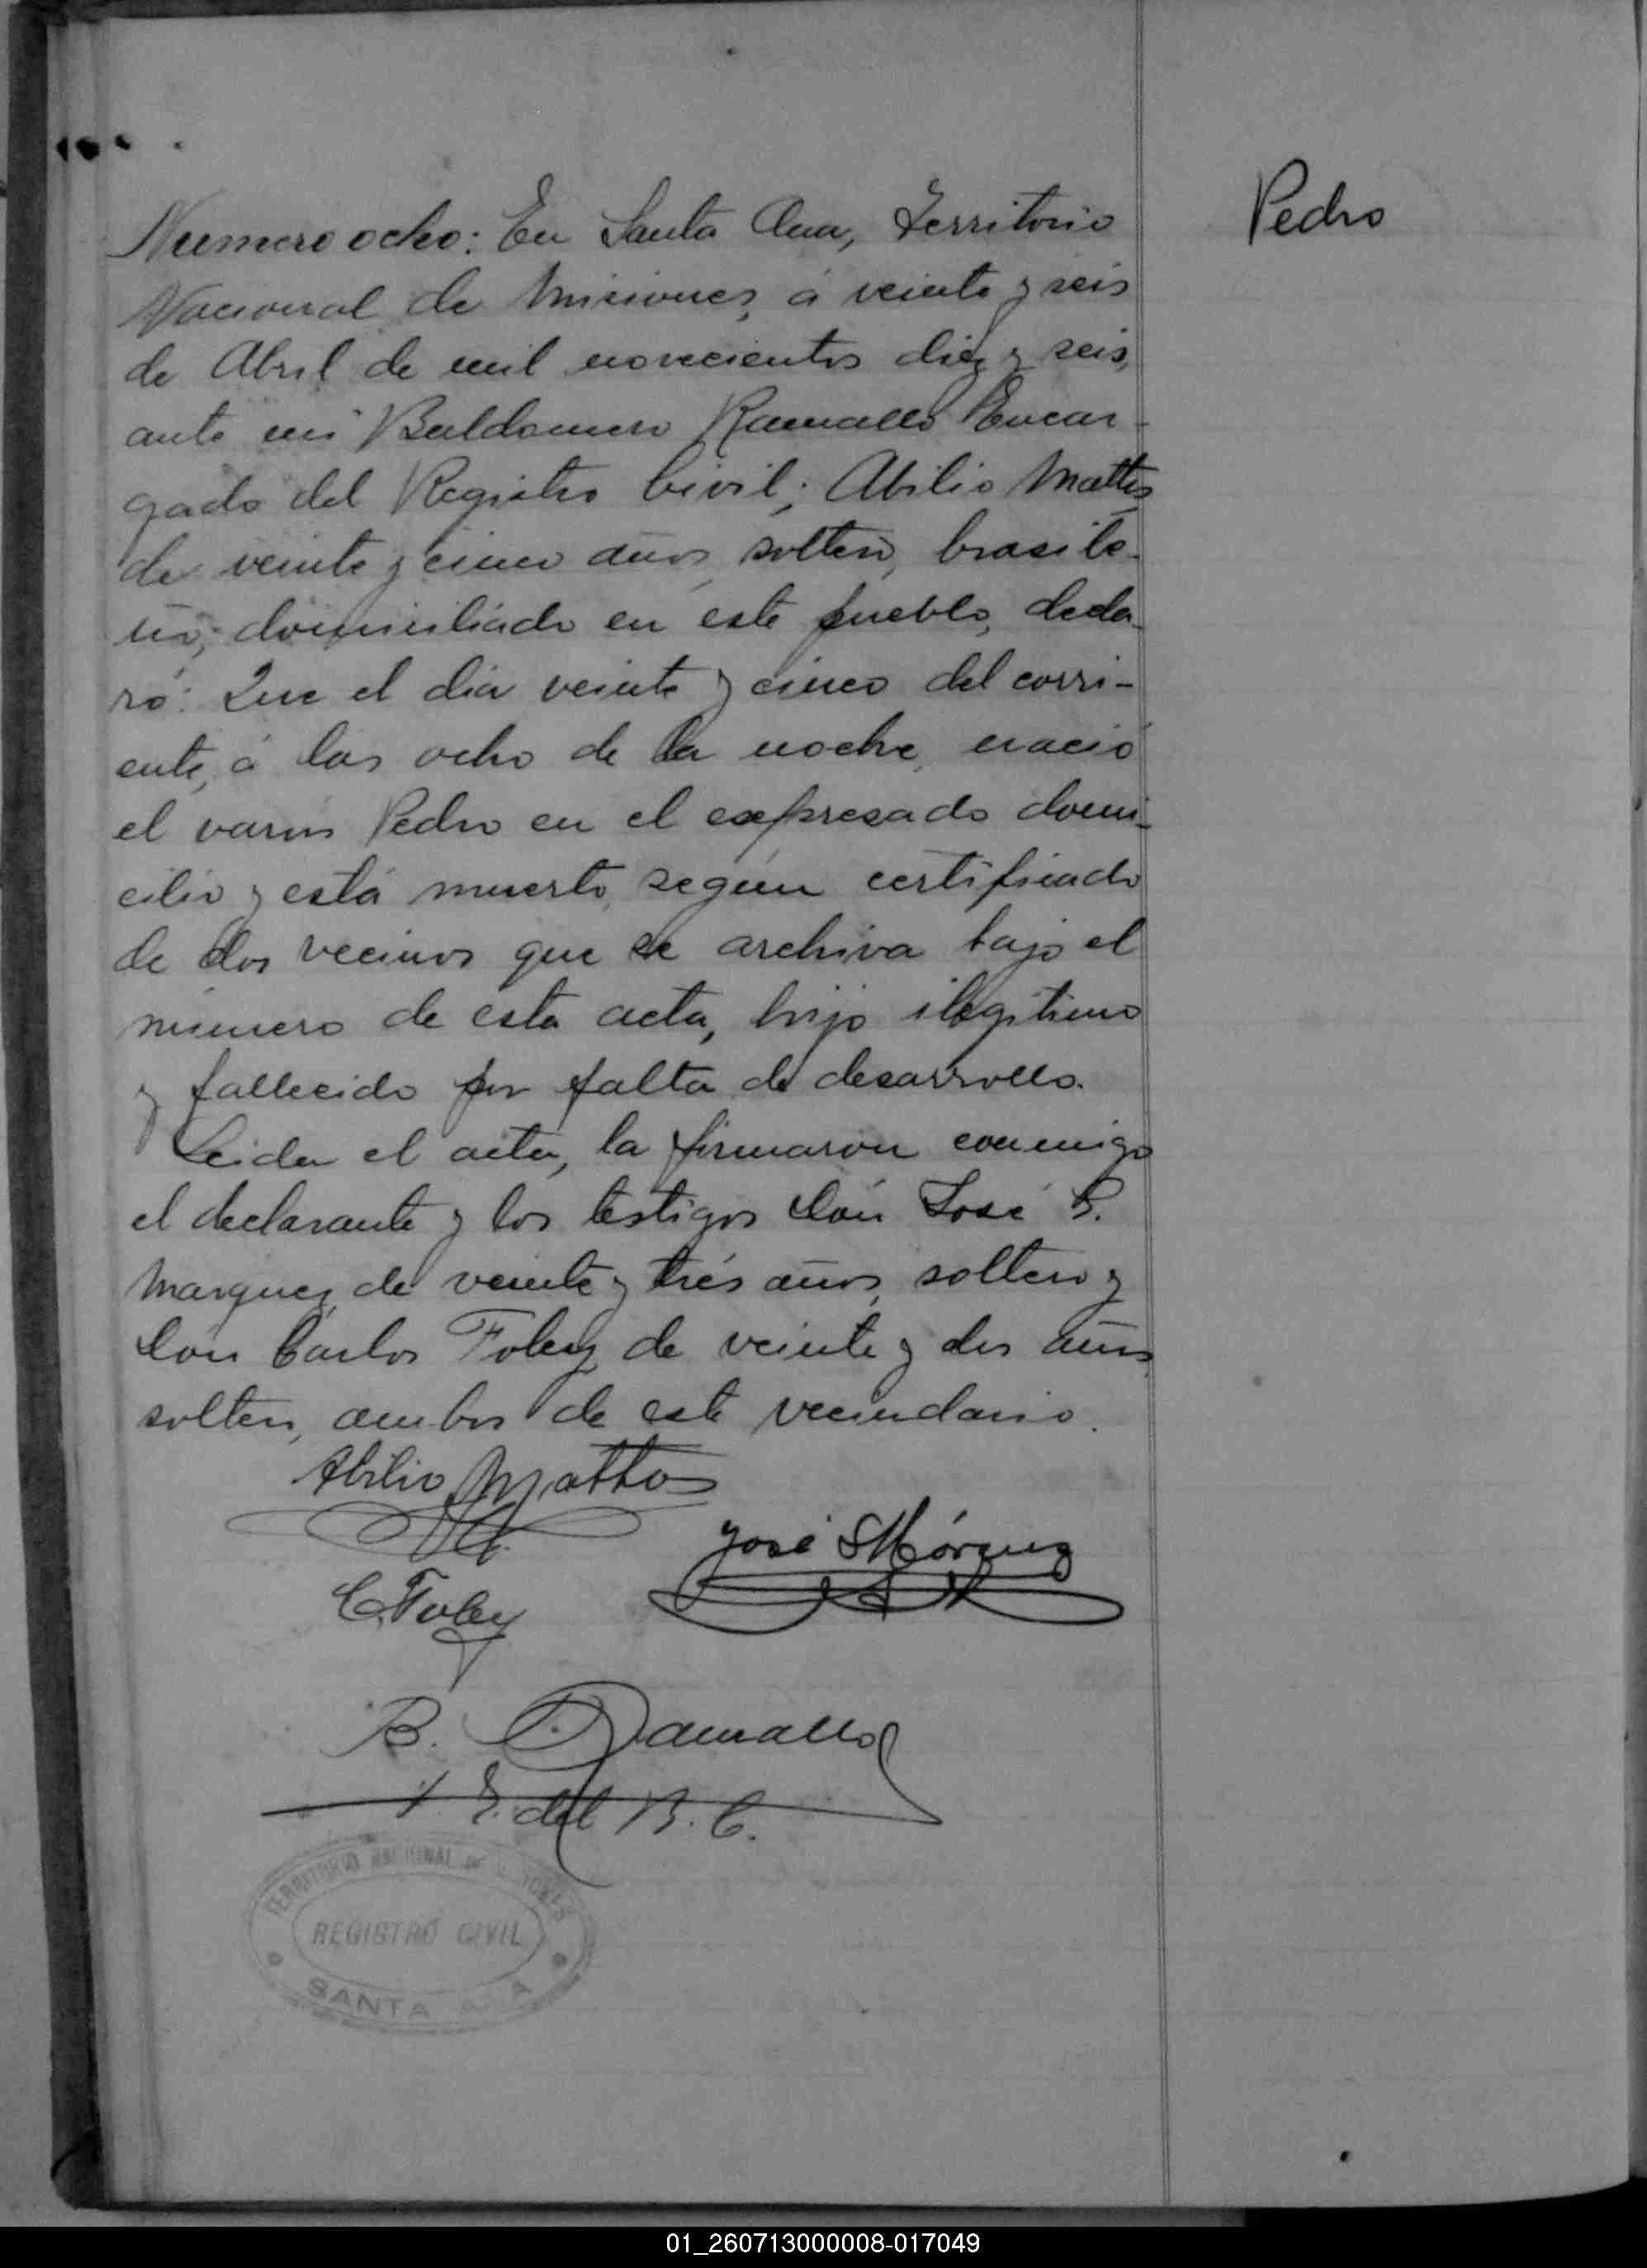 Pedro
Numero ocho: En Santa Ana, Territorio
Nacional de Misiones, á veinte y seis
de Abril de mil novecientos diez y seis,
ante mi Baldomero Ramallo Encar-
gado del Registro Civil; Abilio Mattos
de veinte y cinco años, soltero, brasile-
ño, domiciliado en este pueblo, decla-
ró: Que el dia veinte y cinco del corri-
ente, á las ocho de la noche, nació
el varón Pedro en el expresado domi-
cilio y está muerto, según certificado
de dos vecinos que se archiva bajo el
número de esta acta, hijo ilegitimo
y fallecido por falta de desarrollo.
Leida el acta, la firmaron conmigo
el declarante y los testigos Don José S.
Marquez, de veinte y trés años, soltero y
Don Carlos Foley de veinte y dos años
soltero, ambos de este vecindario.
Abilio Mattos
José S Márquez
C. Foley
B. Ramallo
E. del R. C.
TERRITORIO NACIONAL DE MISIONES
REGISTRO CIVIL
SANTA ANA
01_260713000008-017049